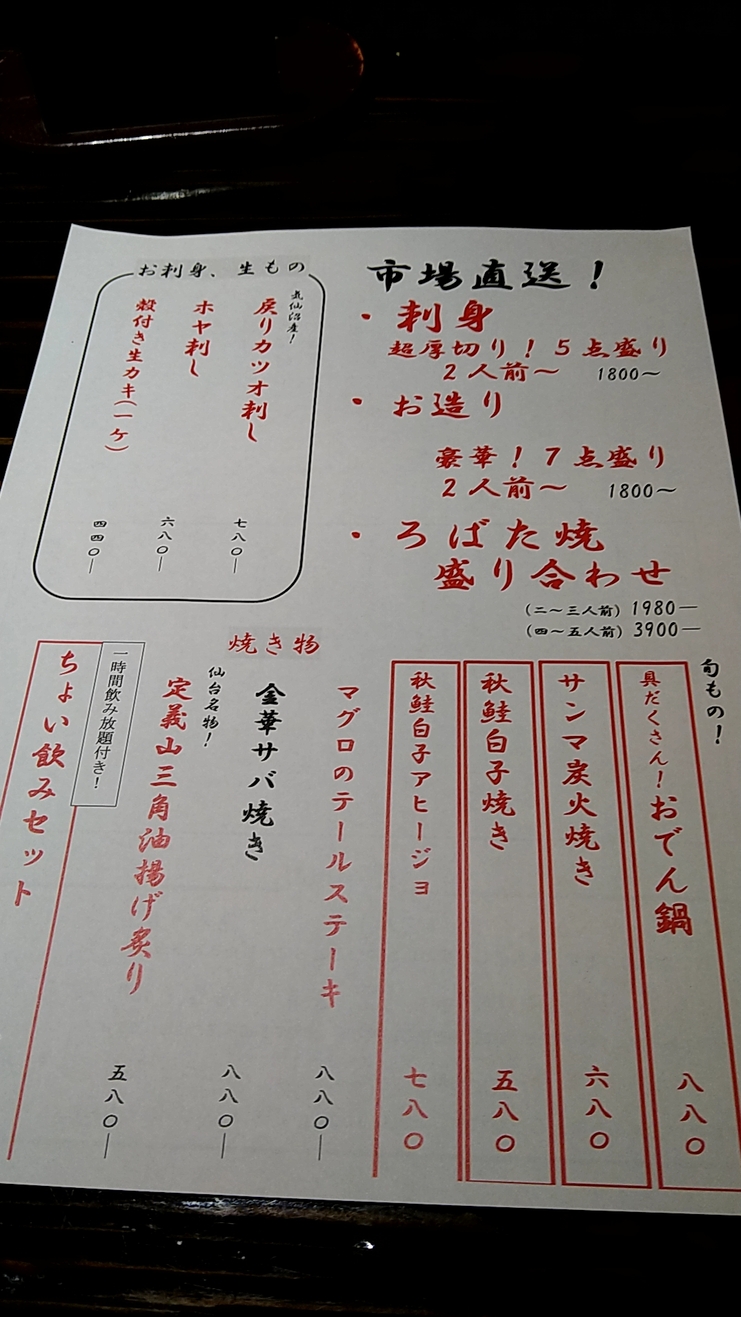 市場直送！
・刺身
超厚切り！５点盛り
２人前～　1800～
・お造り
豪華！７点盛り
２人前～　1800～
・ろばた焼
盛り合わせ
（二～三人前）1980―
（四～五人前）3900―
お刺身、生もの
気仙沼産！
戻りカツオ刺し　七八〇―
ホヤ刺し　六八〇―
殻付き生カキ（一ケ）　四四〇―
旬もの！
具だくさん！おでん鍋　八八〇
サンマ炭火焼き　六八〇
秋鮭白子焼き　五八〇
秋鮭白子アヒージョ　七八〇
焼き物
マグロのテールステーキ　八八〇―
金華サバ焼き　八八〇―
仙台名物！
定義山三角油揚げ炙り　五八〇―
一時間飲み放題付き！
ちょい飲みセット